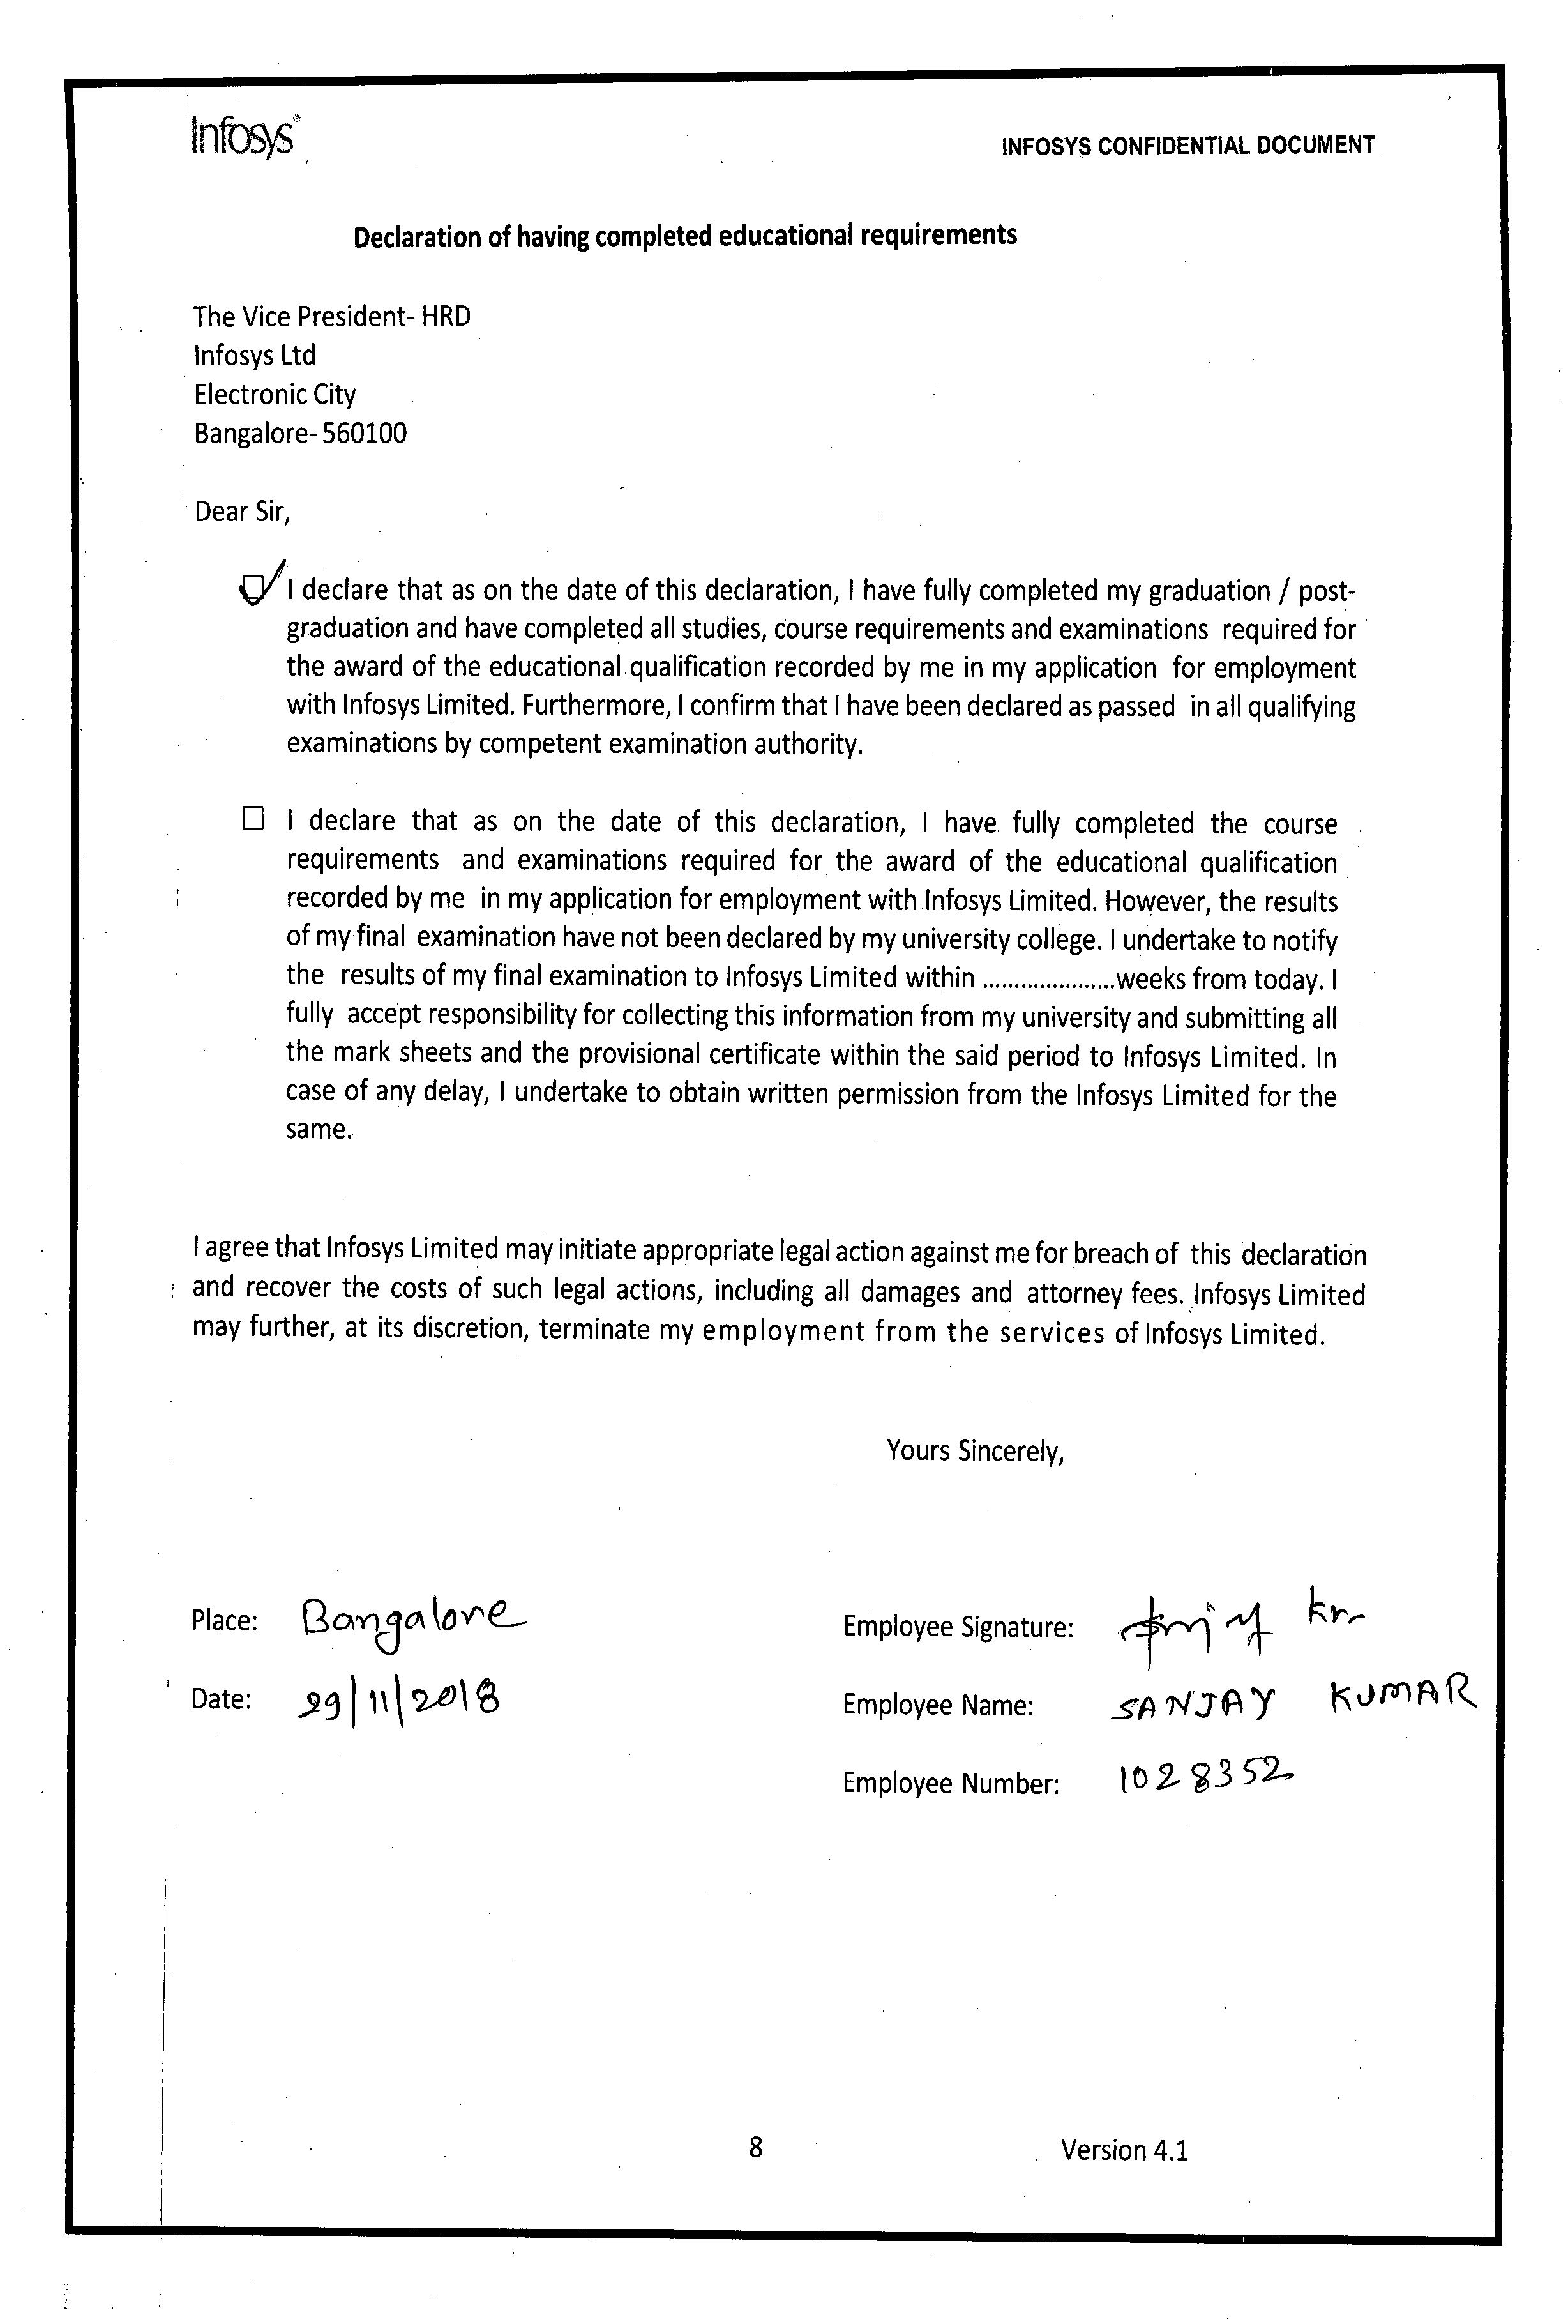 Infosys®
INFOSYS CONFIDENTIAL DOCUMENT
Declaration of having completed educational requirements
The Vice President- HRD
Infosys Ltd
Electronic City
Bangalore- 560100
Dear Sir,
I declare that as on the date of this declaration, I have fully completed my graduation / post-
graduation and have completed all studies, course requirements and examinations required for
the award of the educational qualification recorded by me in my application for employment
with Infosys Limited. Furthermore, I confirm that I have been declared as passed in all qualifying
examinations by competent examination authority.
I declare that as on the date of this declaration, I have fully completed the course
requirements and examinations required for the award of the educational qualification
recorded by me in my application for employment with Infosys Limited. However, the results
of my final examination have not been declared by my university college. I undertake to notify
the results of my final examination to Infosys Limited within .....................weeks from today. I
fully accept responsibility for collecting this information from my university and submitting all
the mark sheets and the provisional certificate within the said period to Infosys Limited. In
case of any delay, I undertake to obtain written permission from the Infosys Limited for the
same.
I agree that Infosys Limited may initiate appropriate legal action against me for breach of this declaration
and recover the costs of such legal actions, including all damages and attorney fees. Infosys Limited
may further, at its discretion, terminate my employment from the services of Infosys Limited.
Yours Sincerely,
Place: Bangalore
Employee Signature:
Date: 29/11/2018
Employee Name: SANJAY KUMAR
Employee Number: 1028352
8
Version 4.1